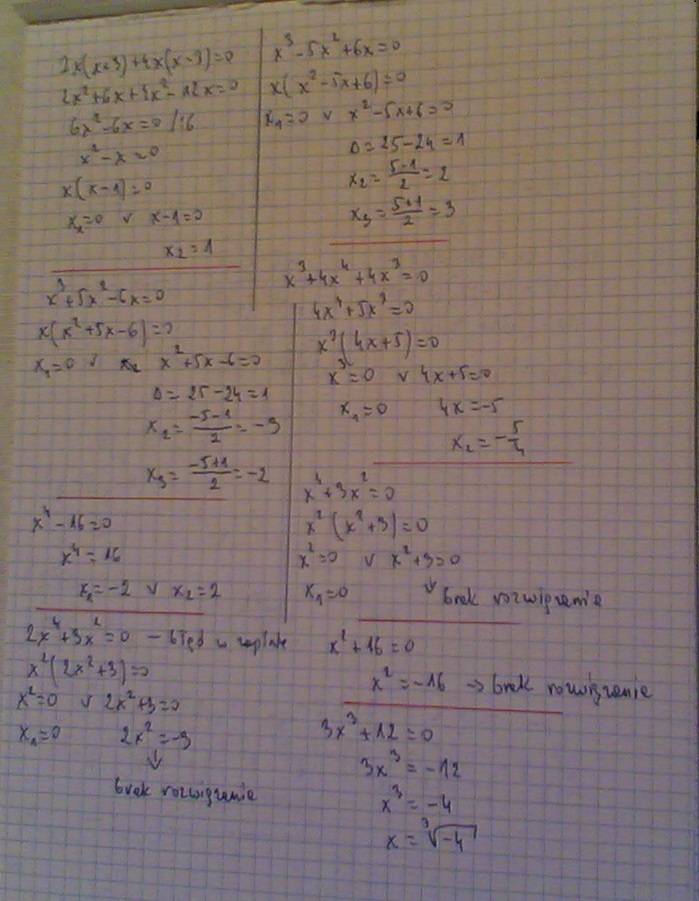 2x(x+3)+4x(x-3)=0
2x²+6x+4x²-12x=0
6x²-6x=0 /:6
x²-x=0
x(x-1)=0
x₁=0 v x-1=0
x₂=1
x³+5x²-6x=0
x(x²+5x-6)=0
x₁=0 v x²+5x-6=0
Δ=25-24=1
x₂=\frac{-5-1}{2}=-3
x₃=\frac{-5+1}{2}=-2
x⁴-16=0
x⁴=16
x₁=-2 v x₂=2
2x⁴+3x²=0 - błąd w
x²(2x²+3)=0
x²=0 v 2x²+3=0
x₁=0 2x²=-3
↓
brak rozwiązania
x³-5x²+6x=0
x(x²-5x+6)=0
x₁=0 v x²-5x+6=0
Δ=25-24=1
x₂=\frac{5-1}{2}=2
x₃=\frac{5+1}{2}=3
x³+4x⁴+4x³=0
4x⁴+5x³=0
x³(4x+5)=0
x³=0 v 4x+5=0
x₁=0 4x=-5
x₂=-\frac{5}{4}
x⁴+3x²=0
x²(x²+3)=0
x²=0 v x²+3=0
x₁=0 ↓ brak rozwiązania
x²+16=0
x²=-16 → brak rozwiązania
3x³+12=0
3x³=-12
x³=-4
x=∛-4